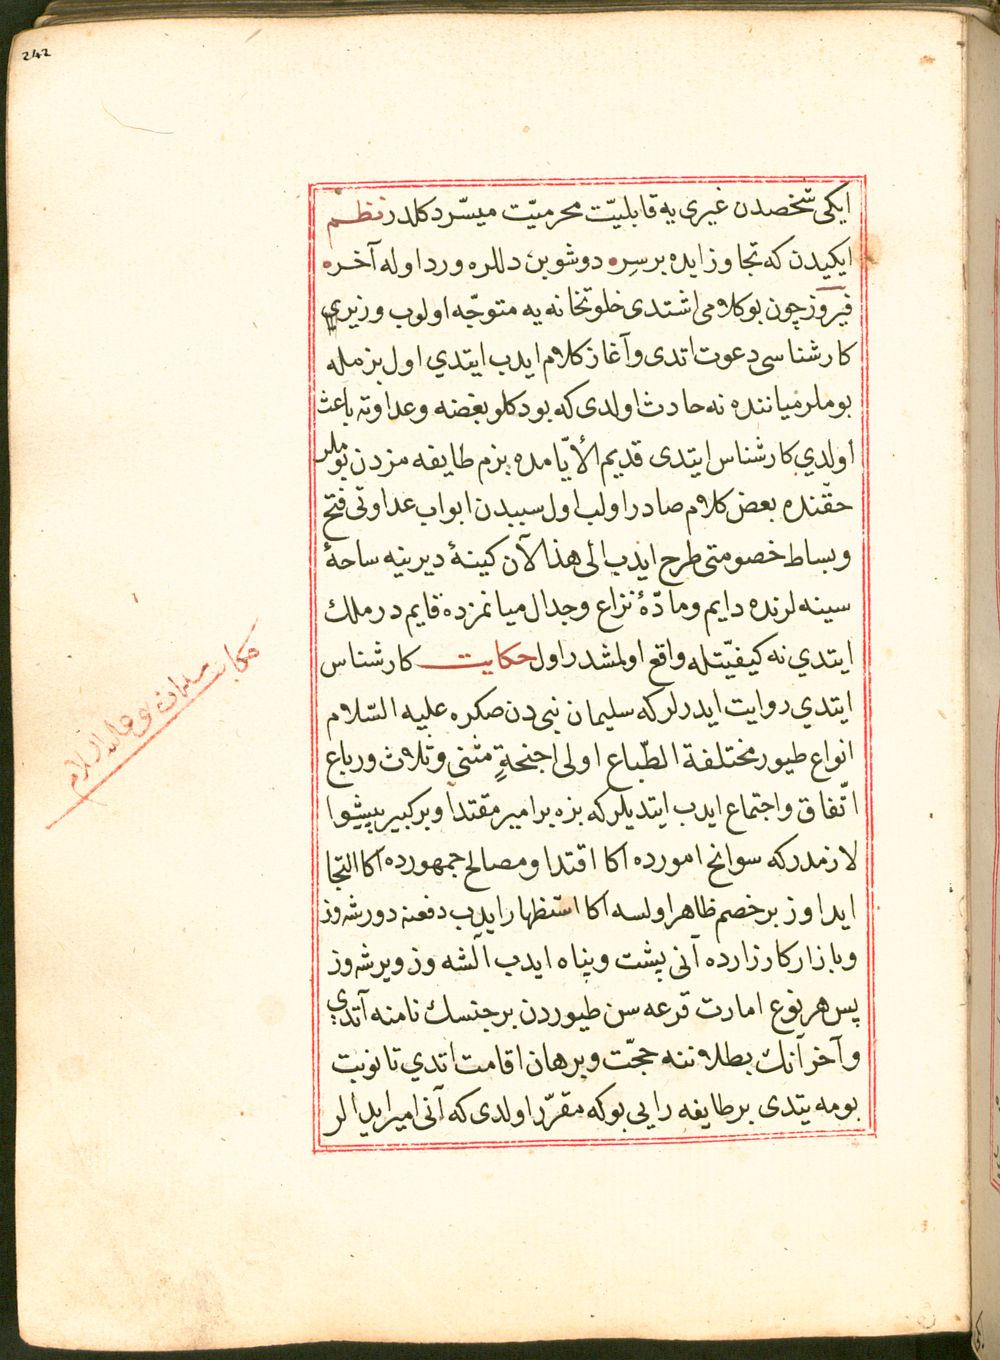 242
ایکی شخصدن غیری یه قابلیّت محرمیّت میسّر دکلدر نظم
ایکیدن که تجاوز ایده بر سره دوشوبن دللره ورد اوله آخره
فیروز چون بو کلامی اشتدی خلوتخانه یه متوجّه اولوب وزیری
کارشناسی دعوت اتدی و آغاز کلام ایدب ایتدي اول بزمله
بوملر میاننده نه حادث اولدی که بو دکلو بغضه و عداوته باعث
اولدي کارشناس ایتدی قدیم الأیّامده بزم طایفه مزدن بوملر
حقّنده بعض کلام صادر اولب اول سببدن ابواب عداوتی فتح
و بساط خصومتی طرح ایدب الی هذا الآن کینهٔ دیرینه ساحهٔ
سینه لرنده دایم و مادّهٔ نزاع و جدال میانمزده قایم در ملك
ایتدي نه کیفیّتله واقع اولمشدر اول حکایت کارشناس
ایتدي روایت ایدرلر که سلیمان نبی دن صکره علیه السّلام
انواع طیور مختلفة الطّباع اولی اجنحةٍ مثنی و ثلاث و رباع
اتّفاق و اجتماع ایدب ایتدیلر که بزه بر امیر مقتدا و بر کبیر پیشوا
لازمدر که سوانح امورده اکا اقتدا و مصالح جمهورده اکا التجا
ایداوز بر خصم ظاهر اولسه اکا استظهار ایدب دفعنه دورشه وز
و بازار کارزارده آنی پشت و پناه ایدب آلشه وز و یرشه وز
پس هر نوع امارت قرعه سن طیوردن بر جنسك نامنه آتدي
و آخر آنك بطلاننه حجّت و برهان اقامت اتدي تا نوبت
بومه یتدی بر طایفه رایی بو که مقرّر اولدی که آنی امیر ایدالر
حکایت سلیمان نبی علیه السلام